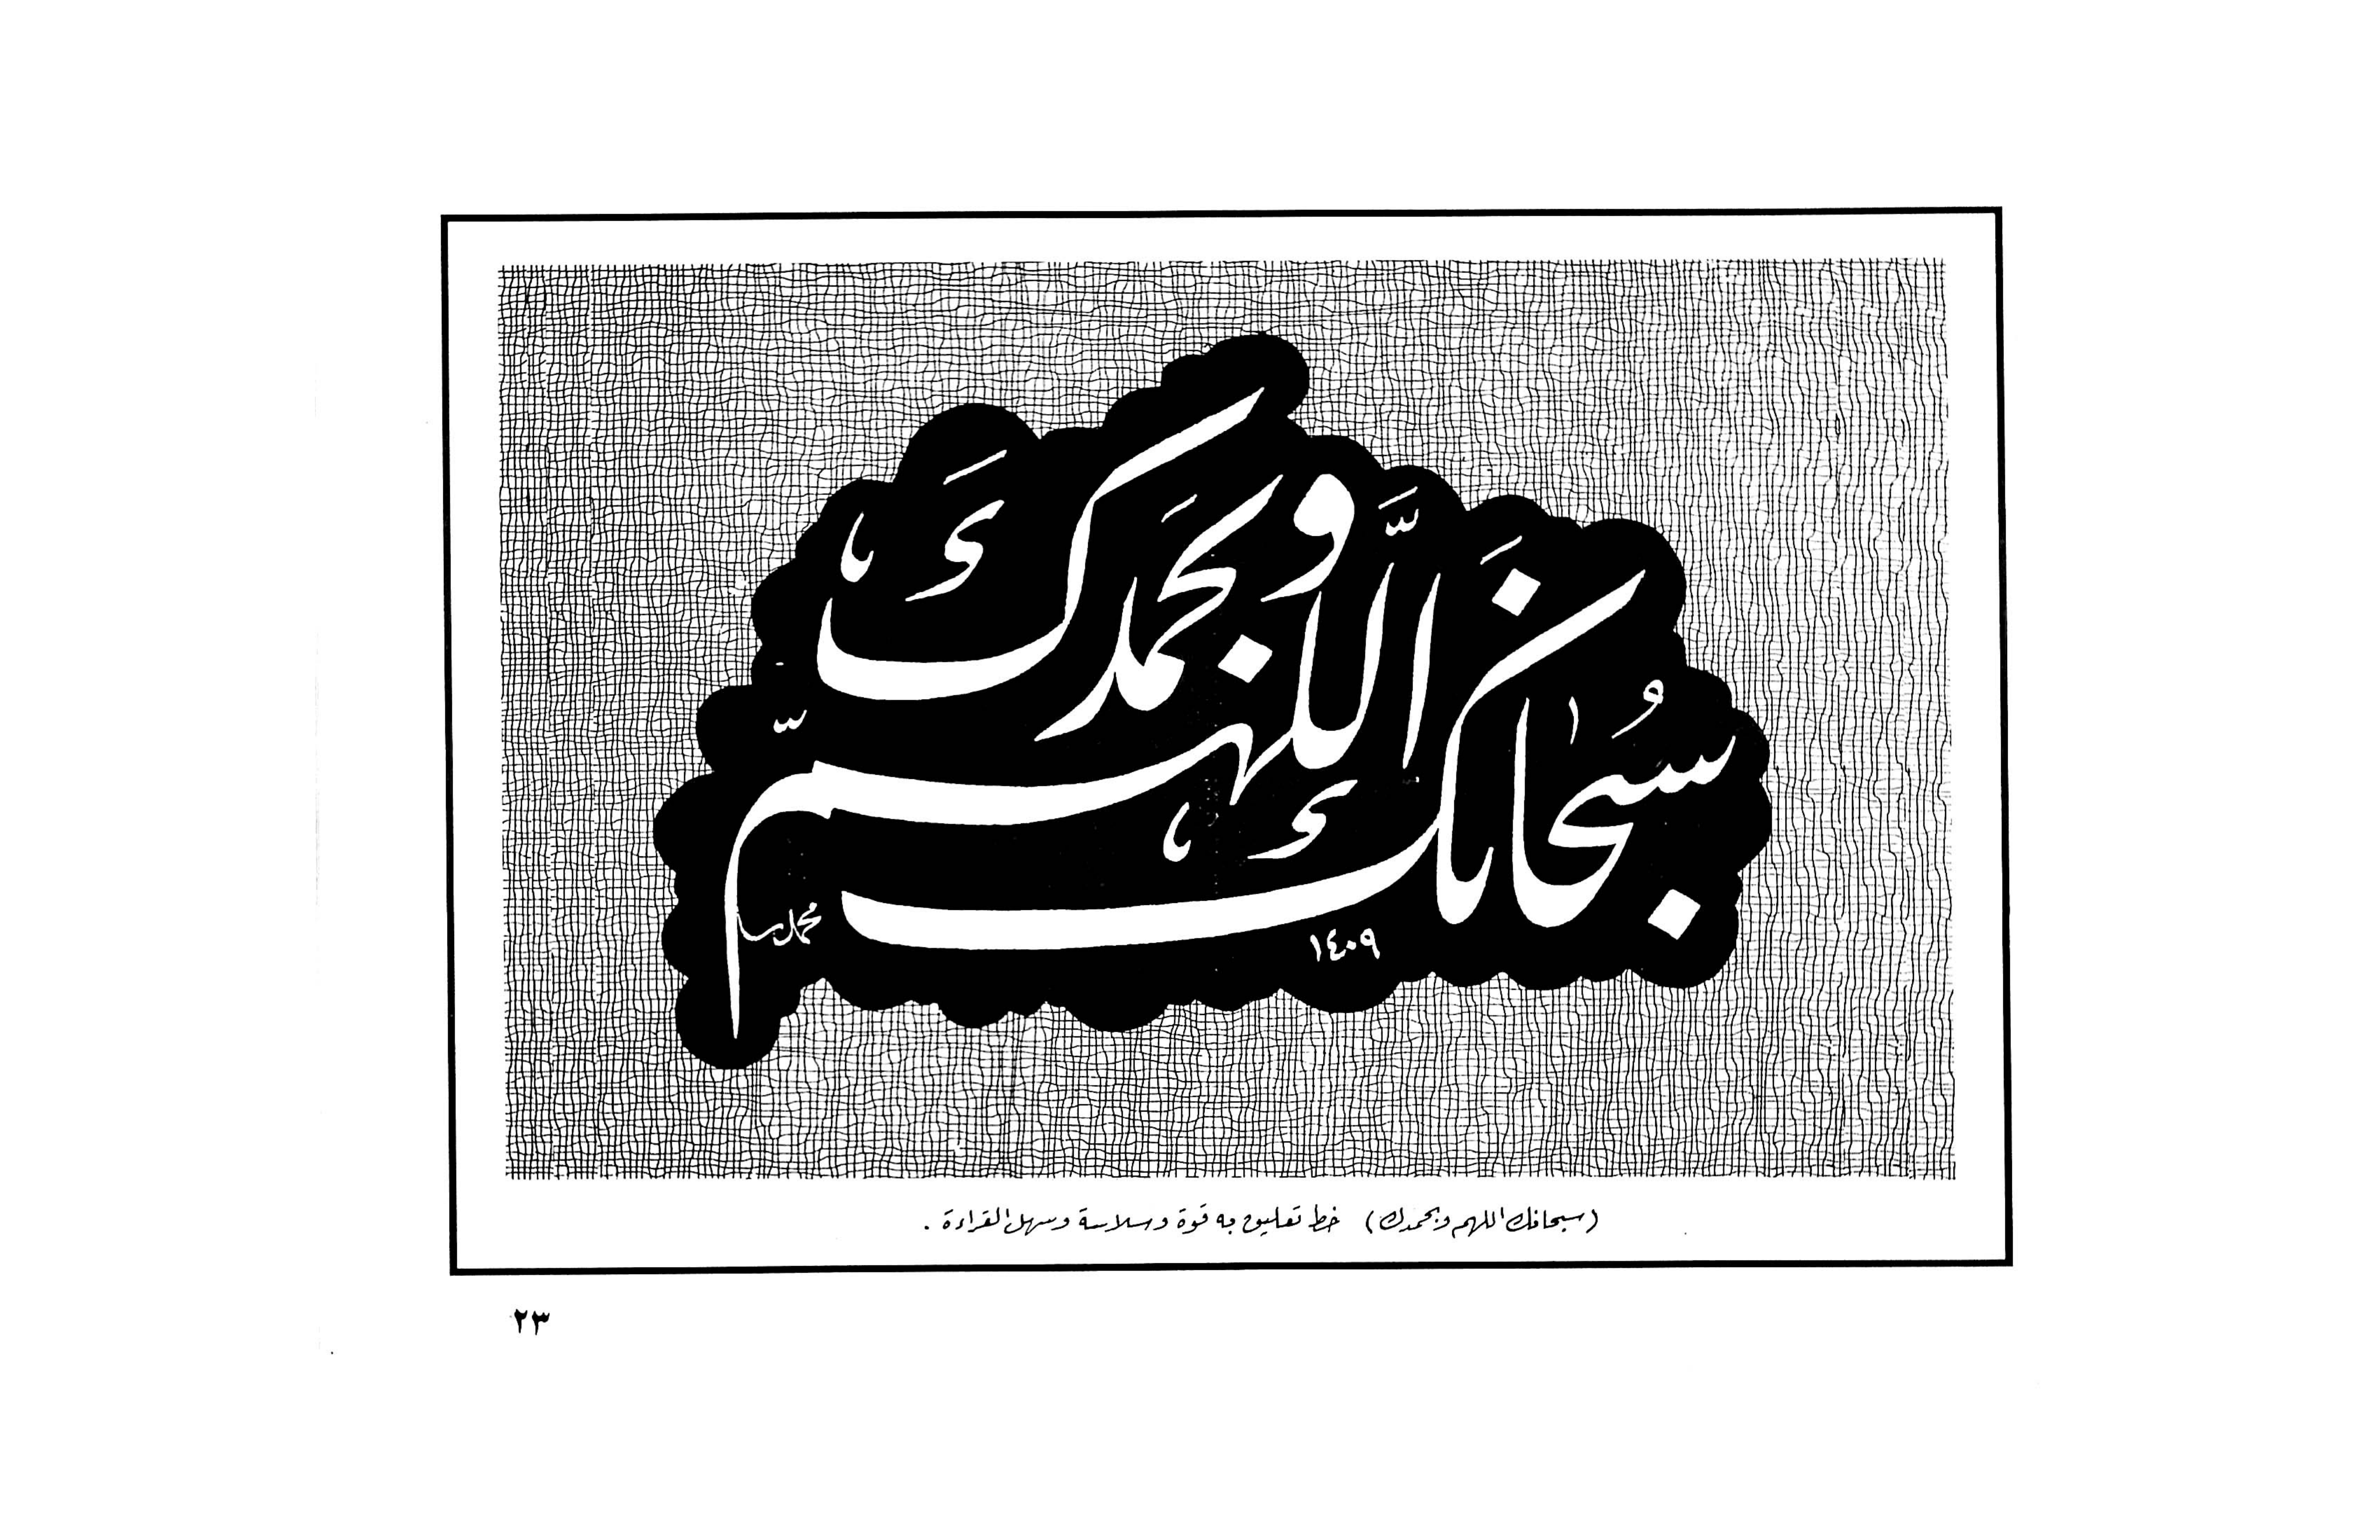 سُبحانَك اللَّهمّ وبحمَدك
١٤٠٩
(سبحانك اللهم وبحمدك) خط تعليق به قوة وسلاسة وسهل القراءة .
٢٣